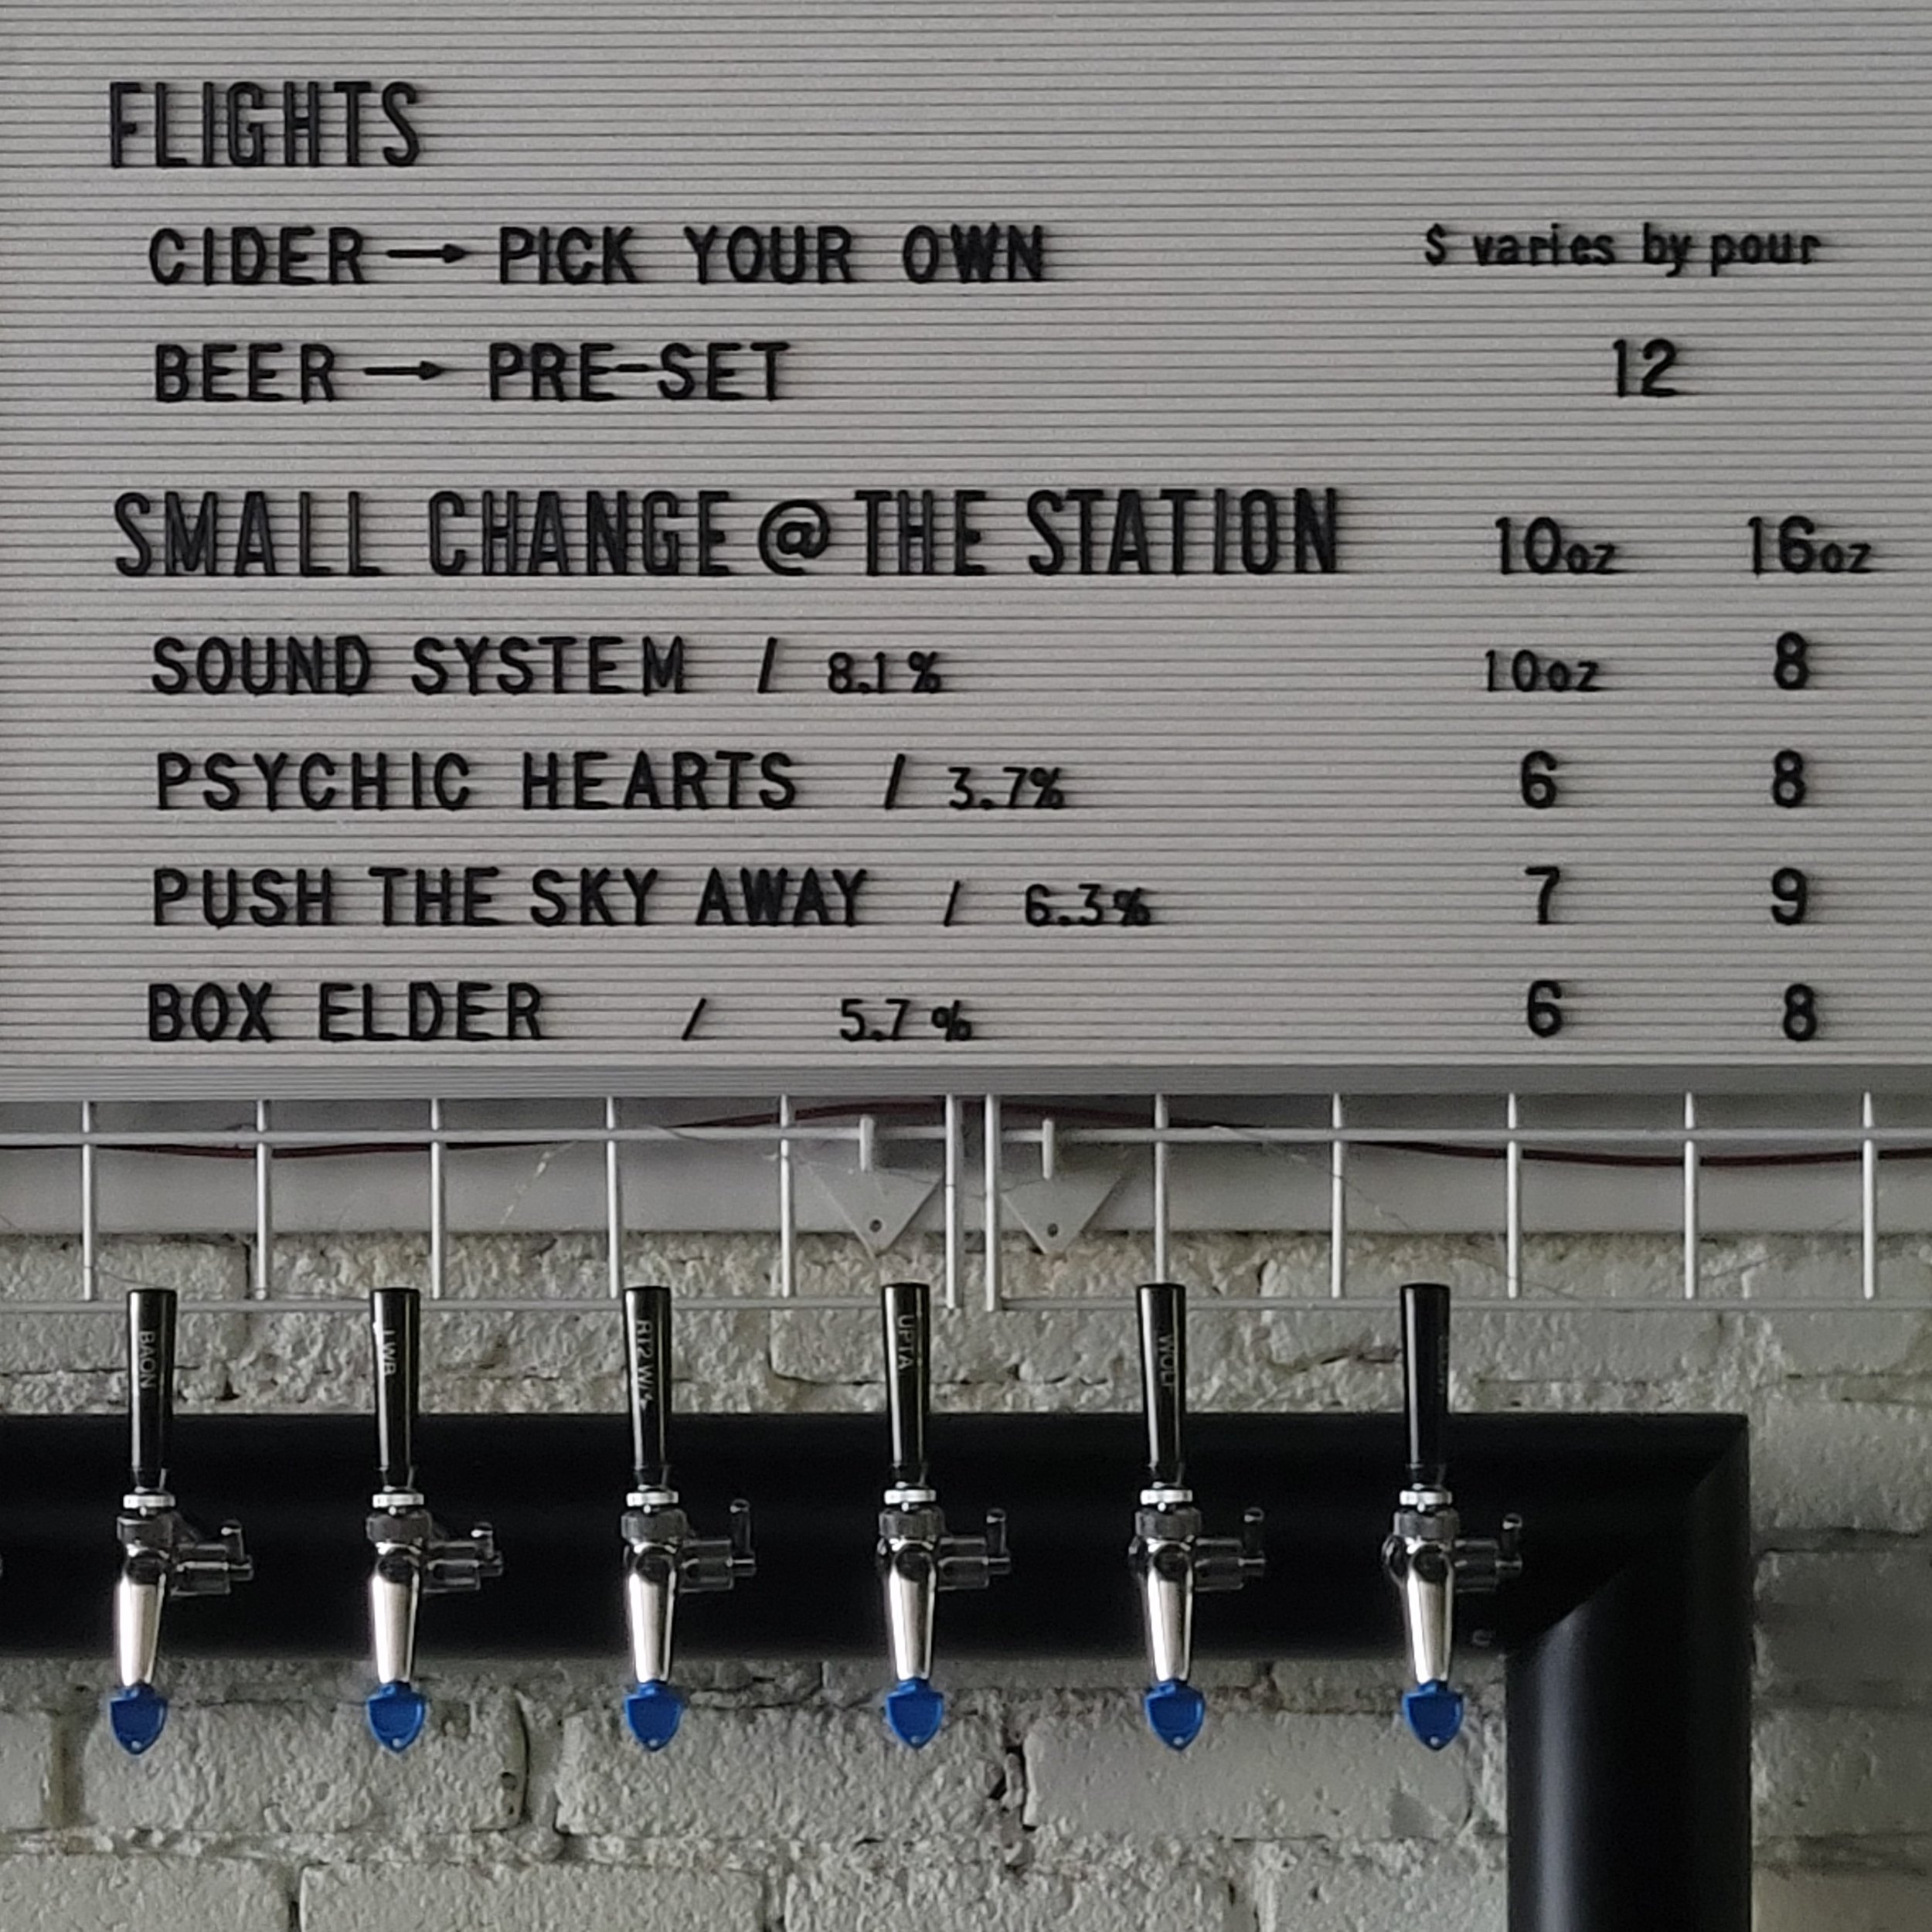 FLIGHTS
CIDER → PICK YOUR OWN $ varies by pour
BEER → PRE-SET 12
SMALL CHANGE @ THE STATION 10oz 16oz
SOUND SYSTEM / 8.1% 10oz 8
PSYCHIC HEARTS / 3.7% 6 8
PUSH THE SKY AWAY / 6.3% 7 9
BOX ELDER / 5.7% 6 8
BACN
LWB
UPTA
WOLF